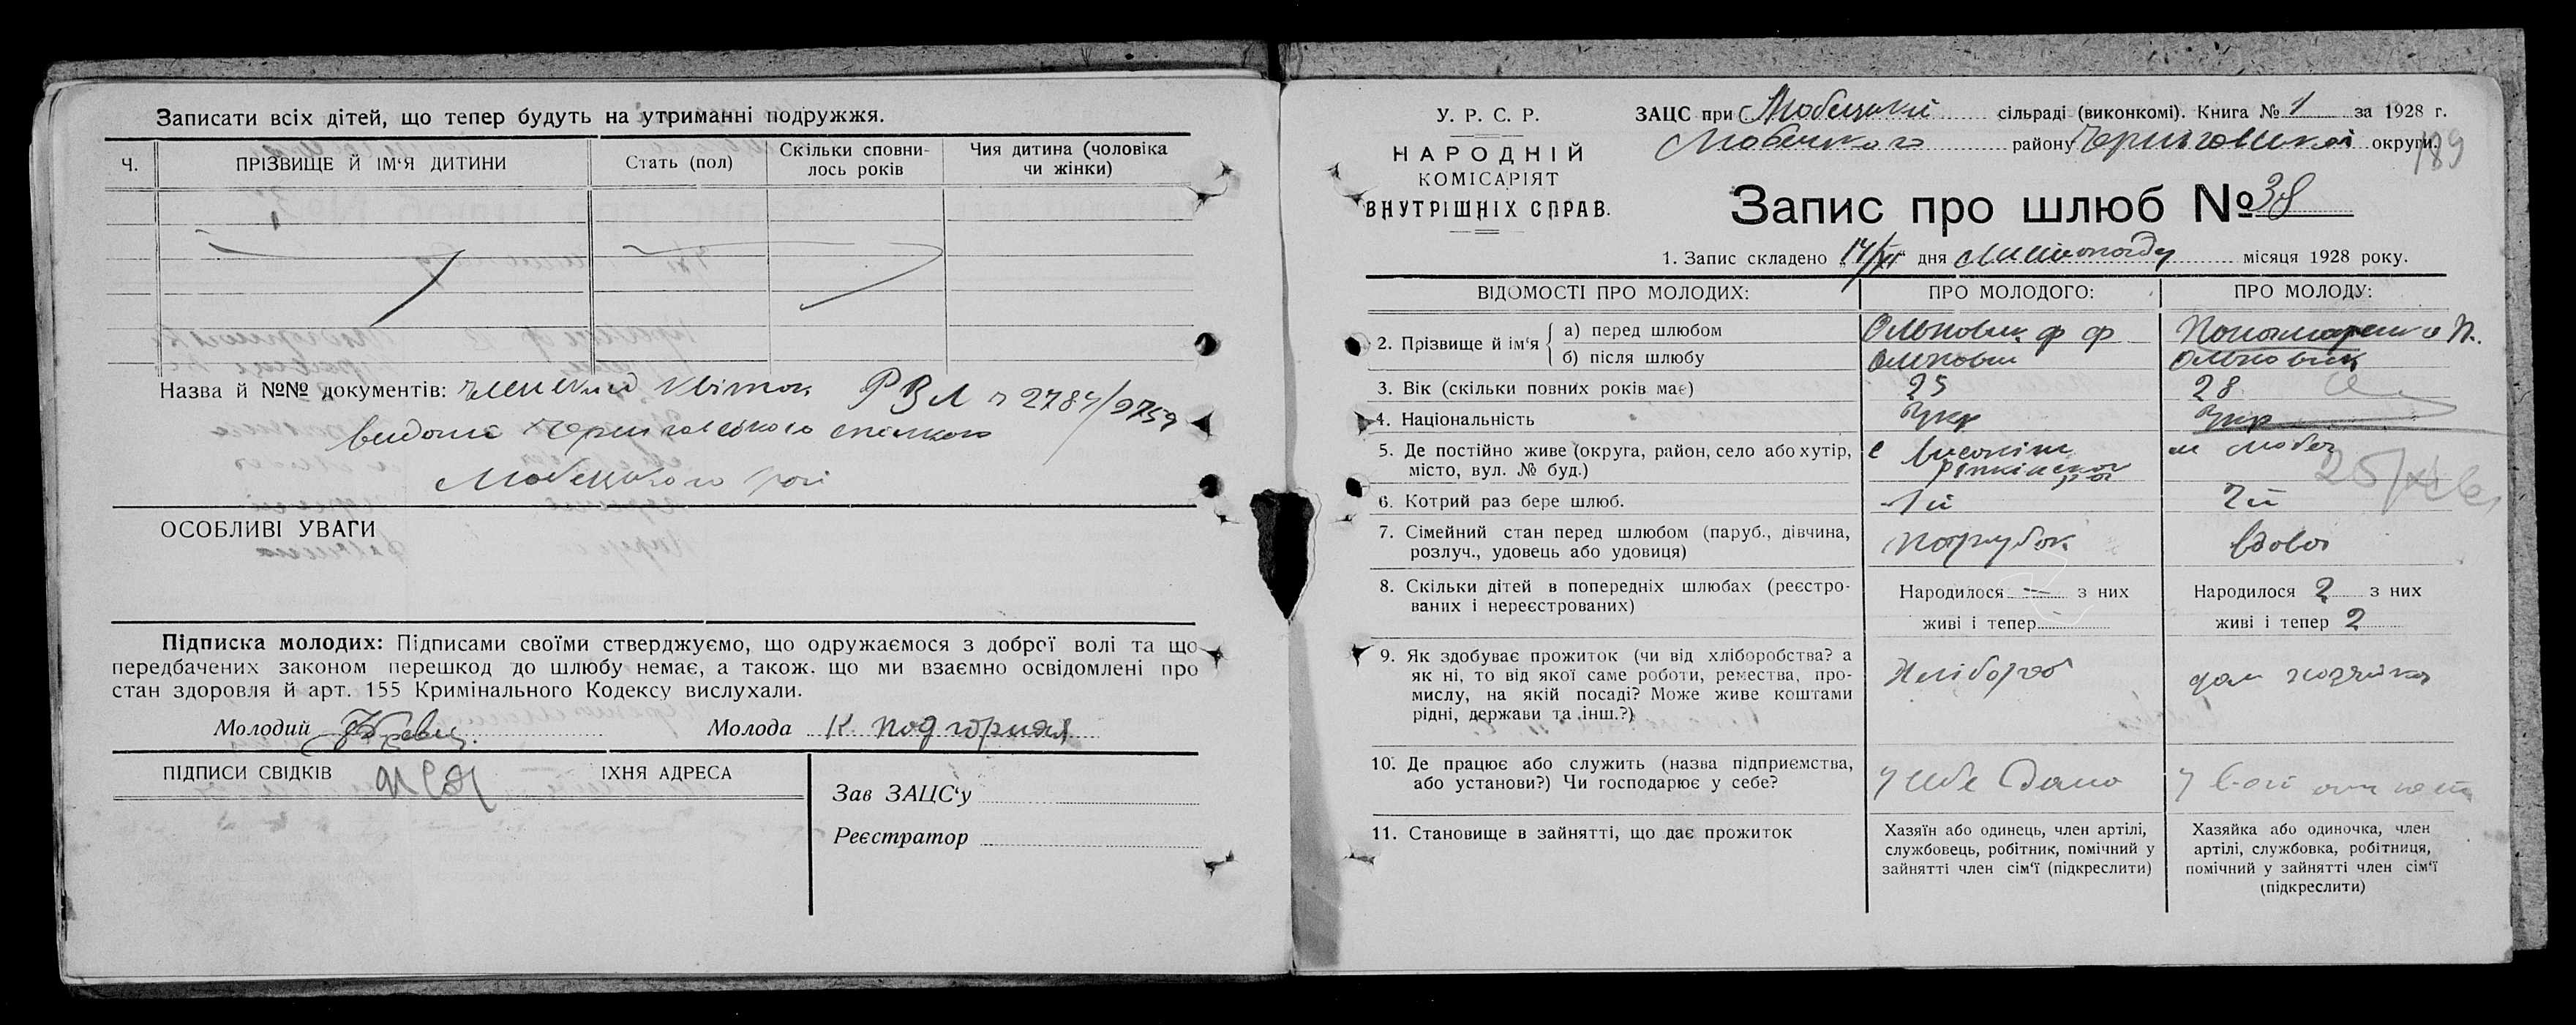 Записати всіх дітей, що тепер будуть на утриманні подружжя.
Ч.
ПРІЗВИЩЕ Й ІМ‘Я ДИТИНИ
Стать (пол)
Скільки сповни-
лось років
Чия дитина (чоловіка
чи жінки)
Назва й №№ документів: членский квіток РЗЛ 2784/9759
видані
Любецького
ОСОБЛИВІ УВАГИ
Підписка молодих: Підписами своїми стверджуємо, що одружаємося з доброї волі та що
передбачених законом перешкод до шлюбу немає, а також. що ми взаємно освідомлені про
стан здоровля й арт. 155 Кримінального Кодексу вислухали.
Молодий
Молода К Подгорная
ПІДПИСИ СВІДКІВ
ІХНЯ АДРЕСА
Зав ЗАЦС‘у
Реєстратор
У. Р. С. Р.
НАРОДНІЙ
КОМІСАРІЯТ
ВНУТРІШНІХ СПРАВ.
ЗАЦС при Любецькій сільраді (виконкомі). Книга № 1 за 1928 г.
Любецького району Чернговської округи.
189
Запис про шлюб № 38
1. Запис складено 14/XI дня Листопаду місяця 1928 року.
ВІДОМОСТІ ПРО МОЛОДИХ:
ПРО МОЛОДОГО:
ПРО МОЛОДУ:
2. Прізвище й ім‘я
а) перед шлюбом
Ф Ф
Пономаренко П.
б) після шлюбу
3. Вік (скільки повних років має)
25
28
4. Національність
Укр
Укр
5. Де постійно живе (округа, район, село або хутір,
місто, вул. № буд.)
с
м Любеч
6. Котрий раз бере шлюб.
1й
2й
7. Сімейний стан перед шлюбом (паруб., дівчина,
розлуч., удовець або удовиця)
парубок
вдова
8. Скільки дітей в попередніх шлюбах (реєстро-
ваних і нереєстрованих)
Народилося — з них
живі і тепер
Народилося 2 з них
живі і тепер 2
9. Як здобуває прожиток (чи від хліборобства? а
як ні, то від якої саме роботи, ремества, про-
мислу, на якій посаді? Може живе коштами
рідні, держави та інш.?)
Хлібороб
дом хозяйка
10. Де працює або служить (назва підприємства,
або установи?) Чи господарює у себе?
у себе дома
11. Становище в зайнятті, що дає прожиток
Хазяїн або одинець, член артілі,
службовець, робітник, помічний у
зайнятті член сім‘ї (підкреслити)
Хазяйка або одиночка, член
артілі, службовка, робітниця,
помічний у зайнятті член сім‘ї
(підкреслити)